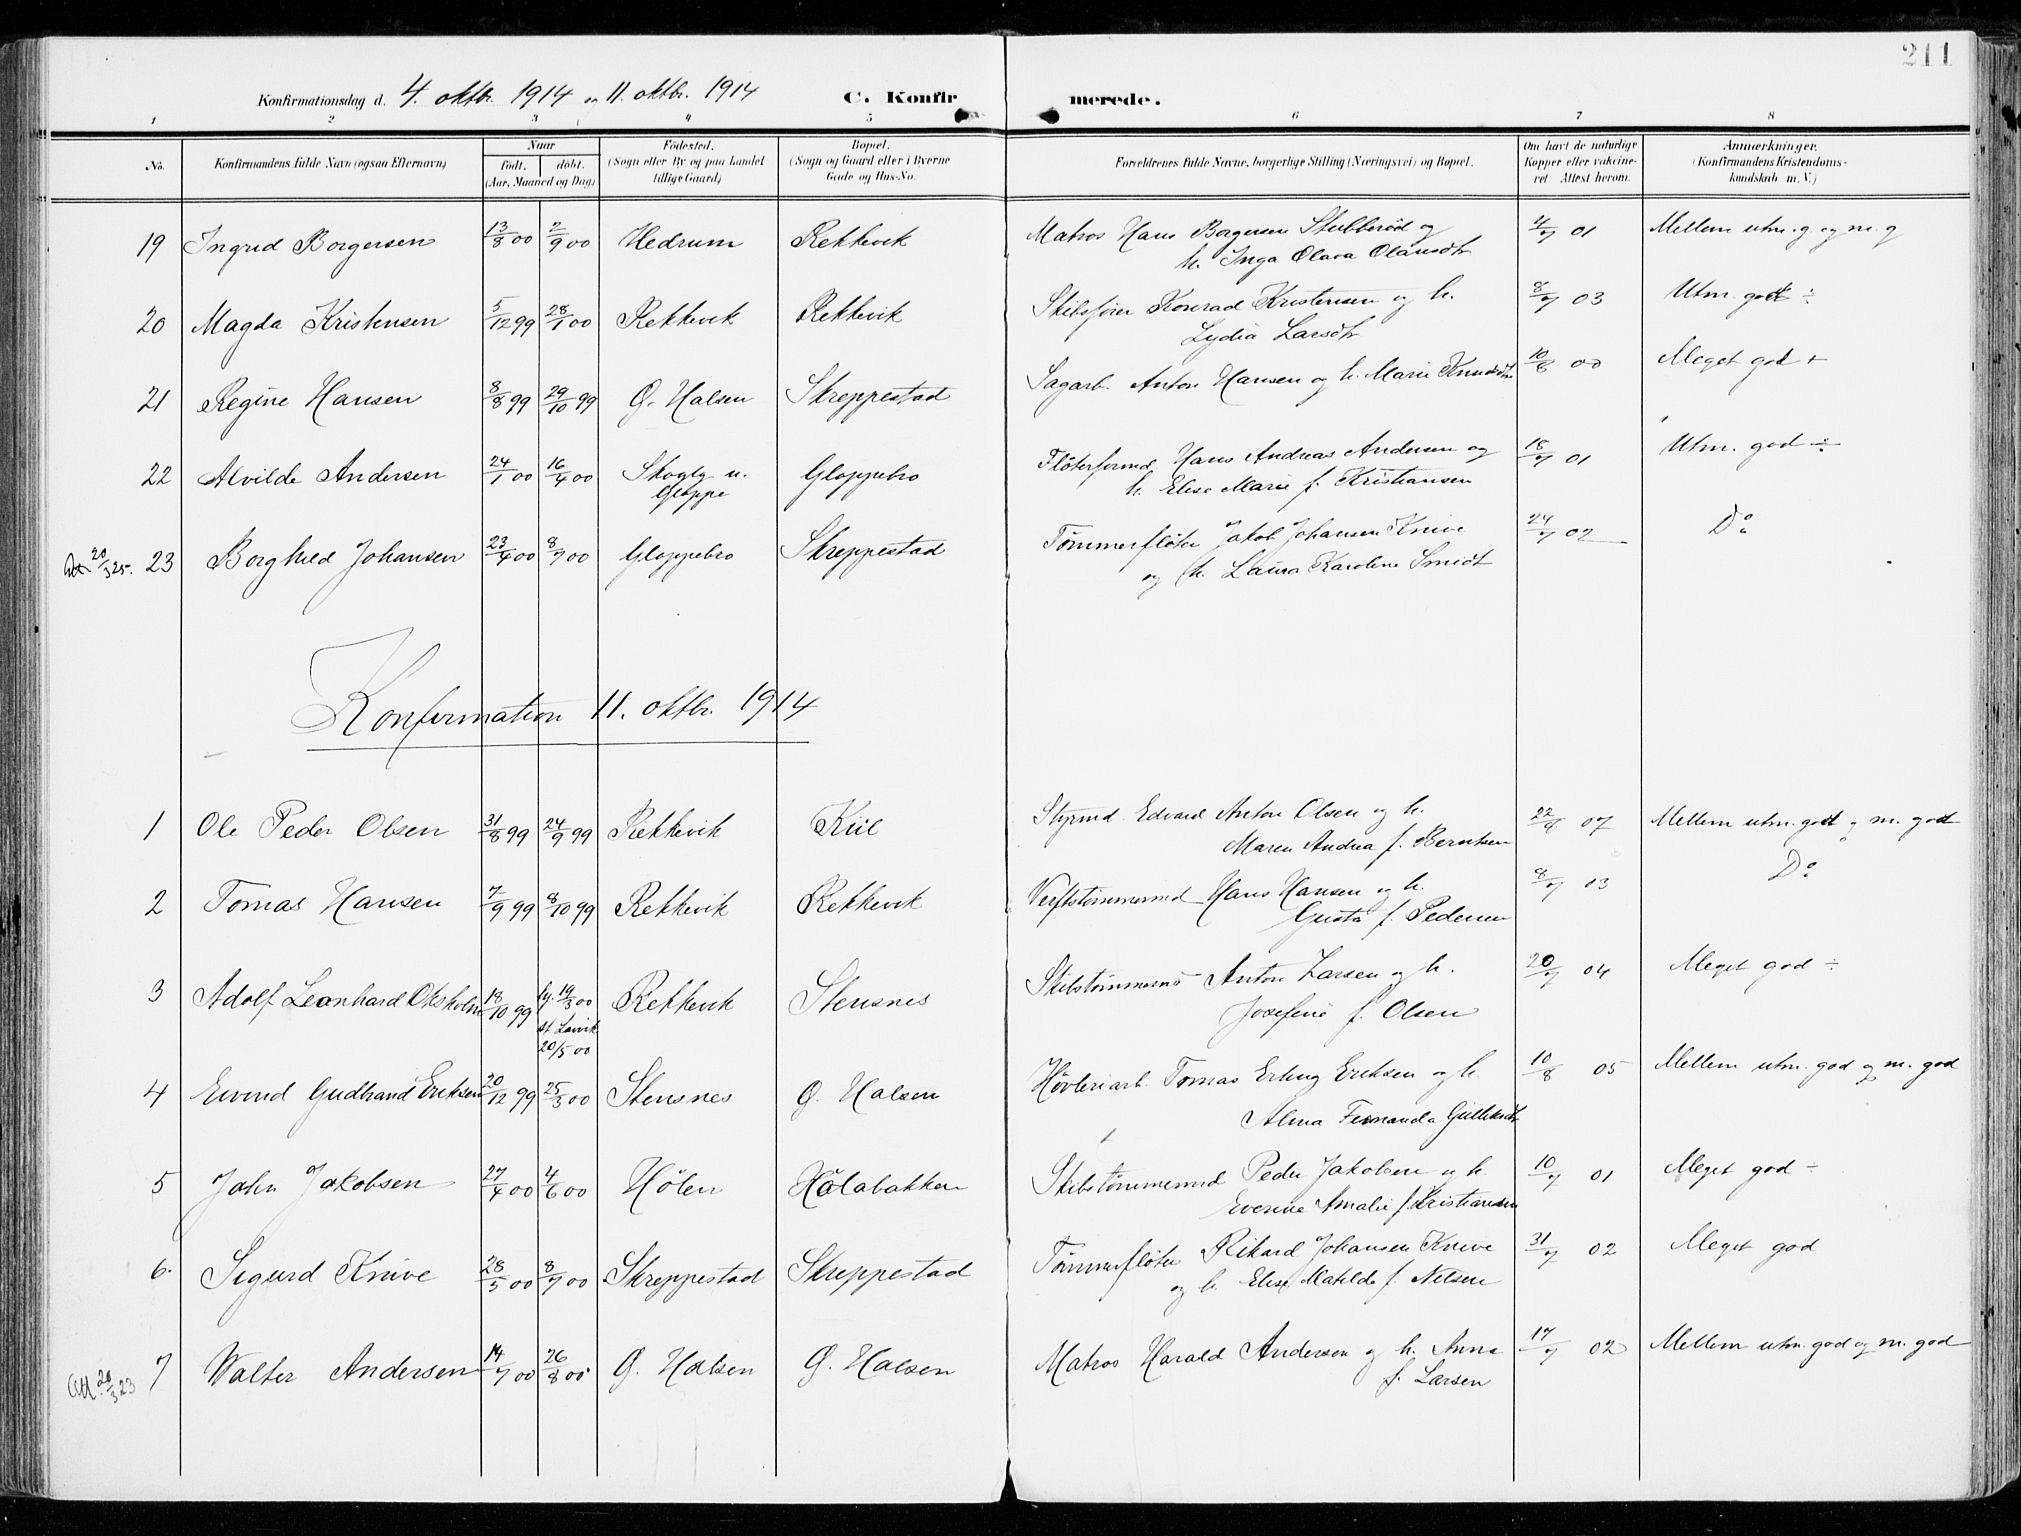 211
Konfirmationsdag d. 4. oktbr. 1914 og 11. oktbr. 1914 C. Konfirmerede.
1 2 3 4 5 6 7 8
No. Konfirmandens fulde Navn (ogsaa Efternavn) Naar født. døbt. (Aar, Maaned og Dag) Fødested. (Sogn eller By og paa Landet tillige Gaard) Bopæl. (Sogn og Gaard eller i Byerne Gade og Hus-No. Forældrenes fulde Navne, borgerlige Stilling (Næringsvei) og Bopæl. Om havt de naturlige Kopper eller vakcineret. Attest herom. Anmærkninger. (Konfirmandens Kristendomskundskab m. V.)
19 Ingrid Borgersen 13/8 00 2/9 00 Hedrum Rekkevik Matros Hans Borgersen Stubberød og 4/7 01 Mellem utm. g og m. g
h. Inga Olava Olausdtr
20 Magda Kristensen 5/12 99 28/1 00 Rekkevik Rekkevik Skibsfører Konrad Kristensen og h. 8/7 03 Utm. godt ÷
Lydia Larsdtr
21 Regine Hansen 8/8 99 29/10 99 Ø. Halsen Skreppestad Sagarb. Anton Hansen og h. Marie Knudsdtr 10/8 00 Meget god +
22 Alvilde Andersen 24/1 00 16/4 00 Skogly u. Gloppebro Fløterformd. Hans Andreas Andersen og 18/7 01 Utm. god ÷
Gloppe h. Elise Marie f. Kristiansen
Att 20/3 25. 23 Borghild Johansen 23/4 00 8/7 00 Gloppebro Skreppestad Tømmerfløter Jakob Johansen Knive 24/7 02 Do
og h. Laura Karoline Smidt
Konfirmation 11. oktbr. 1914
1 Ole Peder Olsen 31/8 99 24/9 99 Rekkevik Kiil Styrmd. Edvard Anton Olsen og h. 22/8 07 Mellem utm. god og m. god
Maren Andrea f. Berntsen
2 Tomas Hansen 7/9 99 8/10 99 Rekkevik Rekkevik Verftstømmermd Hans Hansen og h. 8/7 03 Do
Gusta f. Pedersen
3 Adolf Leonhard Oksholm 18/10 99 hj. 19/3 00 Rekkevik Stensnes Skibstømmermd Anton Larsen og h. 20/7 04 Meget god ÷
st. Larvik Josefine f. Olsen
20/5 00
4 Eivind Gudbrand Eriksen 20/12 99 25/3 00 Stensnes Ø. Halsen Høvleriarb. Tomas Erling Eriksen og h. 10/8 05 Mellem utm. god og m. god
Alma Fernanda Gulliksdtr
5 John Jakobsen 27/4 00 4/6 00 Hølen Hølabakken Skibstømmermd Peder Jakobsen og h. 10/7 01 Meget god ÷
Everine Amalie f. Kristiansen
6. Sigurd Knive 28/5 00 8/7 00 Skreppestad Skreppestad Tømmerfløter Rikard Johansen Knive 31/7 02 Meget god
og h. Elise Matilde f. Nilsen
Att. 20/3 23 7 Walter Andersen 14/7 00 26/8 00 Ø. Halsen Ø. Halsen Matros Harald Andersen og h. Anna 17/7 02 Mellem utm. god og m. god
f. Larsen